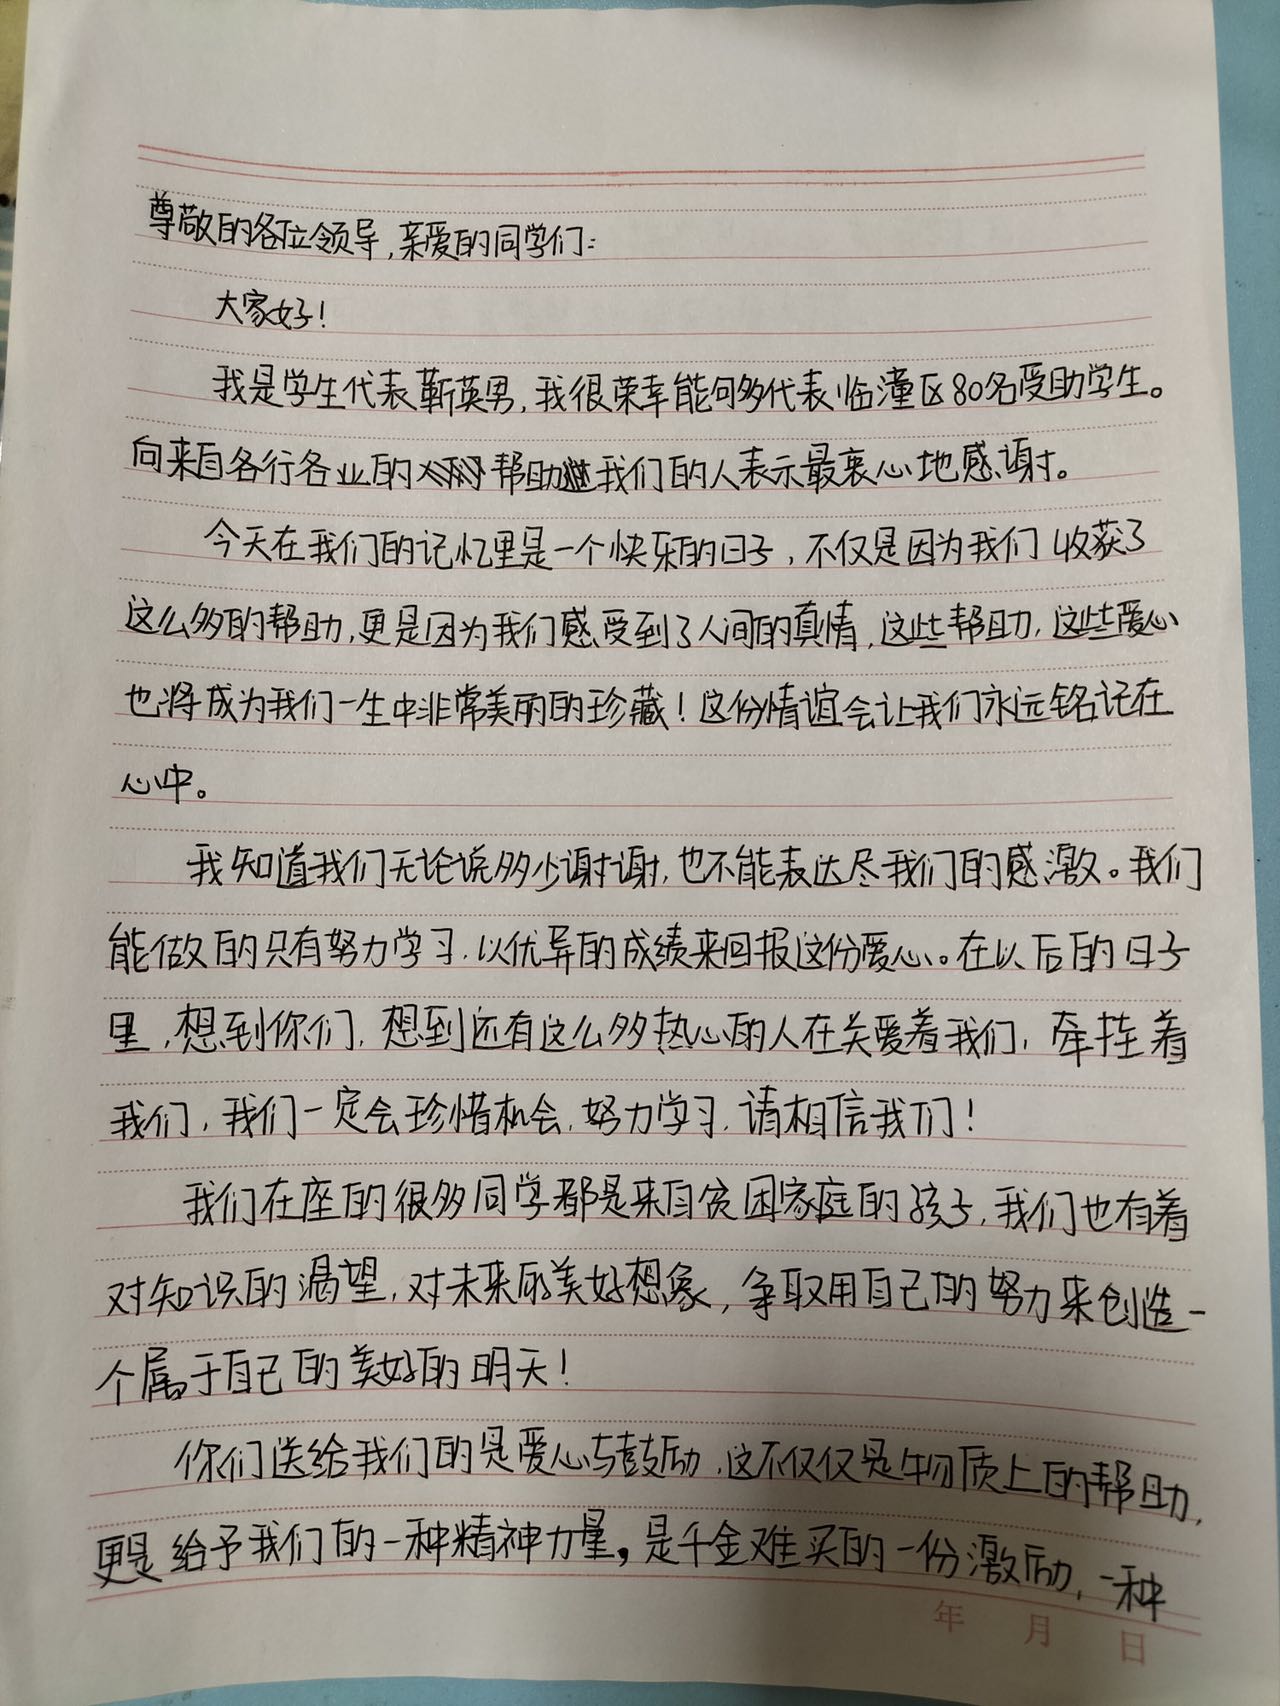 尊敬的各位领导,亲爱的同学们:
大家好!
我是学生代表靳英男,我很荣幸能够代表临潼区80名受助学生。
向来自各行各业的帮助我们的人表示最衷心地感谢。
今天在我们的记忆里是一个快乐的日子,不仅是因为我们收获了
这么多的帮助,更是因为我们感受到了人间的真情,这些帮助,这些爱心
也将成为我们一生中非常美丽的珍藏!这份情谊会让我们永远铭记在
心中。
我知道我们无论说多少谢谢,也不能表达尽我们的感激。我们
能做的只有努力学习,以优异的成绩来回报这份爱心。在以后的日子
里,想到你们,想到还有这么多热心的人在关爱着我们,牵挂着
我们,我们一定会珍惜机会,努力学习,请相信我们!
我们在座的很多同学都是来自贫困家庭的孩子,我们也有着
对知识的渴望,对未来的美好想象,争取用自己的努力来创造一
个属于自己的美好的明天!
你们送给我们的是爱心与鼓励,这不仅仅是物质上的帮助,
更是给予我们的一种精神力量,是千金难买的一份激励,一种
年 月 日